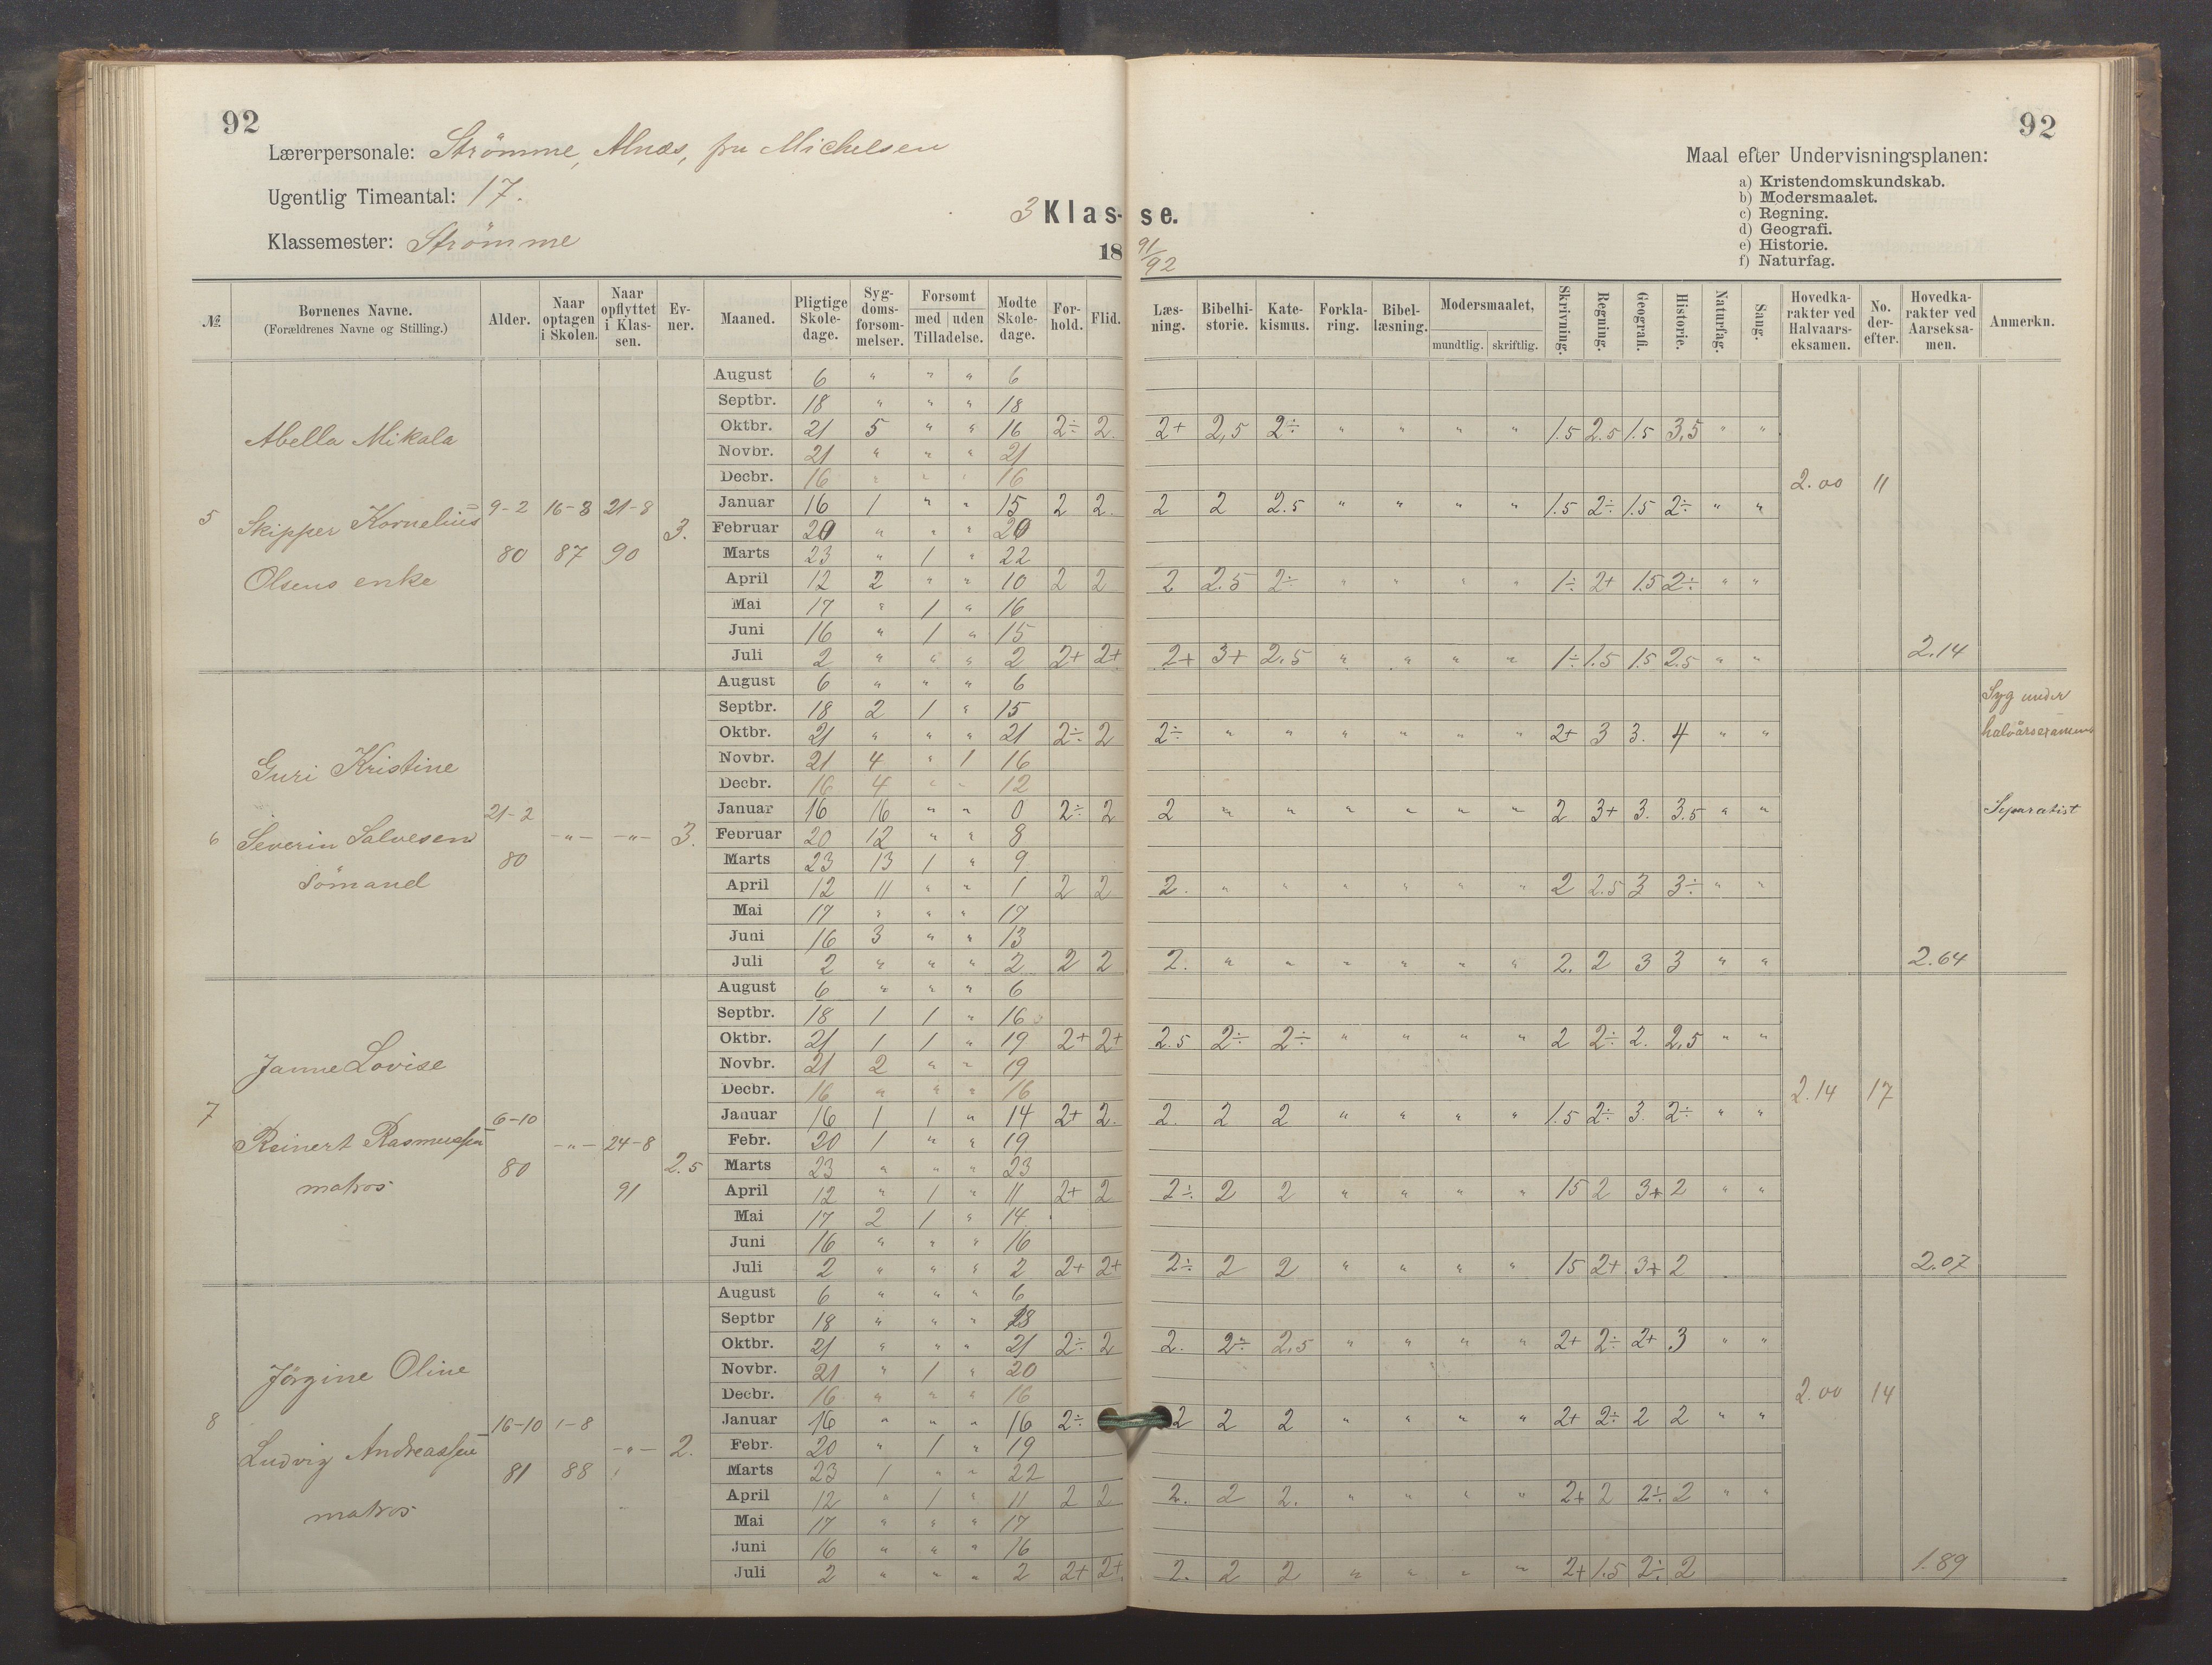 92
92
Lærerpersonale: Strömme, Alnæs, fru Michelsen
Ugentlig Timeantal: 17.
Klassemester: Strömme
3 Klas- se.
18 91/92
Maal efter Undervisningsplanen:
a) Kristendomskundskab.
b) Modersmaalet.
c) Regning.
d) Geografi.
e) Historie.
f) Naturfag.
№ | Børnenes Navne. (Forældrenes Navne og Stilling.) | Alder. | Naar optagen i Skolen. | Naar opflyttet i Klassen. | Evner. | Maaned. | Pligtige Skoledage. | Sygdomsforsømmelser. | Forsømt med uden Tilladelse. | Mødte Skoledage. | Forhold. | Flid. | Læsning. | Bibelhistorie. | Katekismus. | Forklaring. | Bibellæsning. | Modersmaalet, mundtlig. skriftlig. | Skrivning. | Regning. | Geografi. | Historie. | Naturfag. | Sang. | Hovedkarakter ved Halvaarseksamen. | No. derefter. | Hovedkarakter ved Aarseksamen. | Anmerkn.
5 Abella Mikala
Skipper Kornelius
Olsens enke
9-2 80 16-8 87 21-8 90 3.
August 6 " " " 6
Septbr. 18 " " " 18
Oktbr. 21 5 " " 16 2÷ 2. 2+ 2,5 2÷ " " " " 1.5 2.5 1.5 3,5 " "
Novbr. 21 " " " 21
Decbr. 16 " " " 16 2.00 11
Januar 16 1 " " 15 2 2. 2 2 2.5 " " " " 1.5 2÷ 1.5 2÷ " "
Februar 20 " " " 20
Marts 23 " 1 " 22
April 12 2 " " 10 2 2 2 2.5 2÷ " " " " 1÷ 2+ 1.5 2÷ " "
Mai 17 " 1 " 16
Juni 16 " 1 " 15
Juli 2 " " " 2 2+ 2+ 2+ 3+ 2.5 " " " " 1÷ 1.5 1.5 2.5 " " 2.14
6 Guri Kristine
Severin Salvesen
Sömand
21-2 80 -"- -"- 3.
August 6 " " " 6
Septbr. 18 2 1 " 15 Syg under
Oktbr. 21 " " " 21 2÷ 2 2÷ " " " " " " 2+ 3 3. 4 " " halvårsexamen
Novbr. 21 4 " 1 16
Decbr. 16 4 " " 12
Januar 16 16 " " 0 2÷ 2 2 " " " " " " 2 3+ 3. 3.5 " " Separatist
Februar 20 12 " " 8
Marts 23 13 1 " 9
April 12 11 " " 1 2 2 2. " " " " " " 2 2.5 3 3÷ " "
Mai 17 " " " 17
Juni 16 3 " " 13
Juli 2 " " " 2 2 2 2. " " " " " " 2. 2 3 3 " " 2.64
7 Janne Lovise
Reinert Rasmussen
matros
6-10 80 -"- 24-8 91 2.5
August 6 " " " 6
Septbr. 18 1 1 " 16
Oktbr. 21 1 1 " 19 2+ 2+ 2.5 2÷ 2÷ " " " " 2 2÷ 2. 2,5 " "
Novbr. 21 2 " " 19
Decbr. 16 " " " 16 2.14 17
Januar 16 1 1 " 14 2+ 2. 2. 2 2 " " " " 1.5 2÷ 3. 2÷ " "
Febr. 20 1 " " 19
Marts 23 " " " 23
April 12 " 1 " 11 2+ 2 2÷ 2 2 " " " " 15 2 3+ 2 " "
Mai 17 2 1 " 14
Juni 16 " " " 16
Juli 2 " " " 2 2+ 2+ 2÷ 2 2 " " " " 15 2+ 3+ 2 2.07
8 Jörgine Oline
Ludvig Andreassen
matros
16-10 81 1-8 88 -"- 2.
August 6 " " " 6
Septbr 18 " " " 18
Oktbr. 21 " " " 21 2÷ 2 2. 2÷ 2,5 " " " " 2+ 2÷ 2+ 3 " "
Novbr. 21 " 1 " 20
Decbr. 16 " " " 16 2.00 14
Januar 16 " " " 16 2÷ 2 2 2 " " " " 2+ 2÷ 2 2 " "
Febr. 20 " 1 " 19
Marts 23 1 " " 22
April 12 " 1 " 11 2 2 2. 2 2. " " " " 2+ 2 2÷ 2 " "
Mai 17 " " " 17
Juni 16 " " " 16
Juli 2 " " " 2 2+ 2+ 2. 2 2 " " " " 2+ 1.5 2÷ 2 1.89